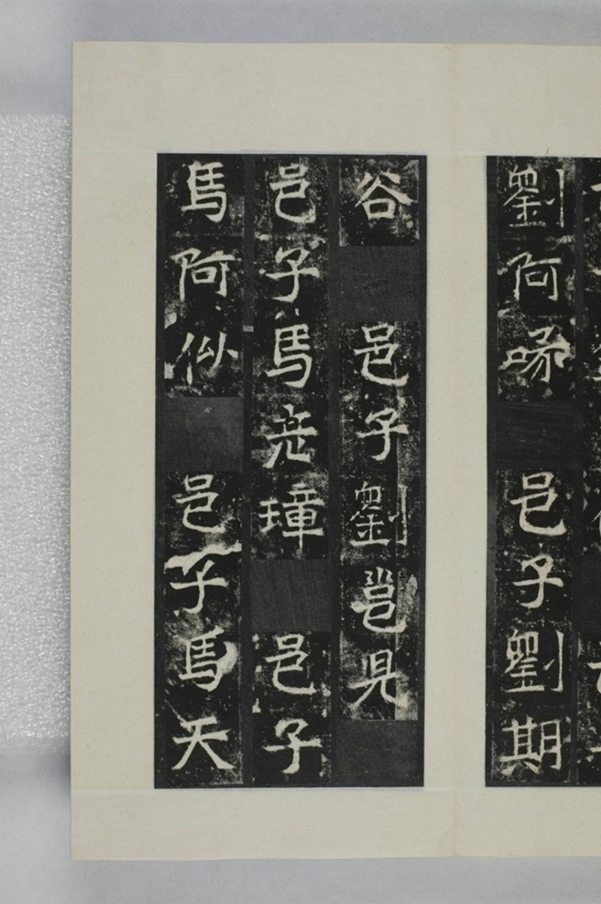 劉阿㫾
邑子劉期
谷
邑子劉邕兒
邑子馬元璋
邑子
馬阿似
邑子馬天